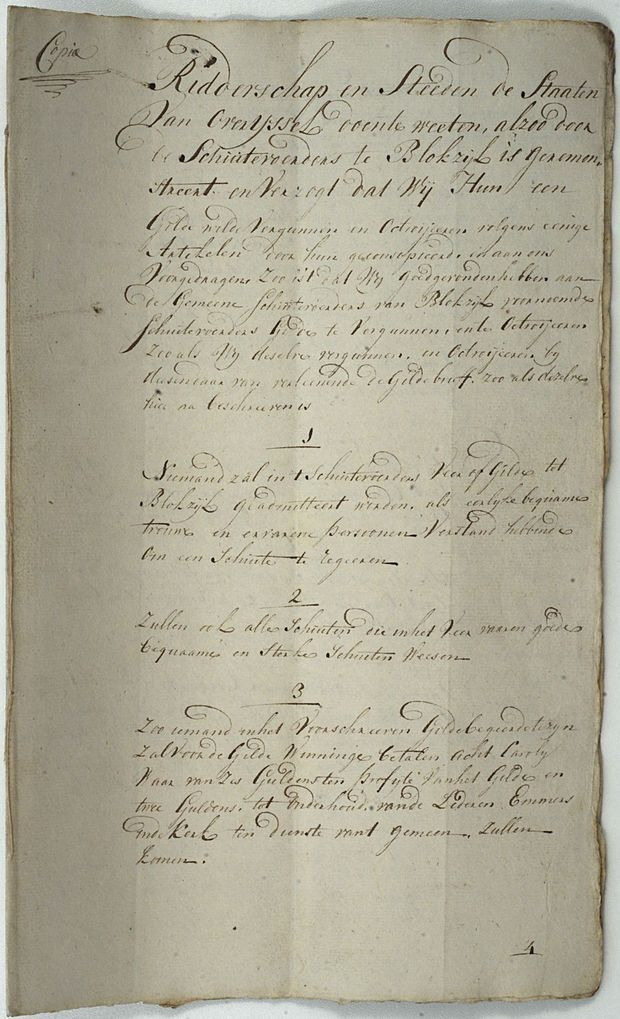 Copia
Ridderschap en Steeden de Staaten
Van Overyssel doente weeten, alzoo door
de Schuitevoerders te Blokzijl is geremon-
streert en Verzogt dat Wij Hun een
Gilde wilde Vergunnen en Octroijeeren volgens eenige
Artikelen door hun geconsepieerd en aan ons
Voorgedragen, Zoo ist dat Wij goedgevonden hebben aan
de Gemeene Schuitevoerders van Blokzijl voornoemde
Schuitevoerders Gilde te Vergunnen, ende Octroijeeren
Zoo als Wij deselve vergunnen, en Octroijeeren by
deesen daar van verleenende de Gildebrief, zoo als dezelve
hier na beschreeven is
1
Niemand zal in 't Schuitevoerders Veer of Gilde tot
Blokzijl geadmitteert worden, als eerlijke bequame
trouwe en ervarene persoonen Verstand hebbende
om een Schuite te regeeren
2
Zullen ook alle Schuiten die in het Veer vaaren goede
bequaame en Sterke Schuiten Weesen
3
Zoo iemand in het Voorschreeven Gilde begeerde te zyn
Zal Voor de Gilde Winninge betalen Acht Caroly
Waar van Zes Guldens ten profyte Van het Gilde en
twee Guldens tot Onderhoud van de Lederen Emmers
in de Kerk ten dienste van 't gemeen, Zullen
komen.
4